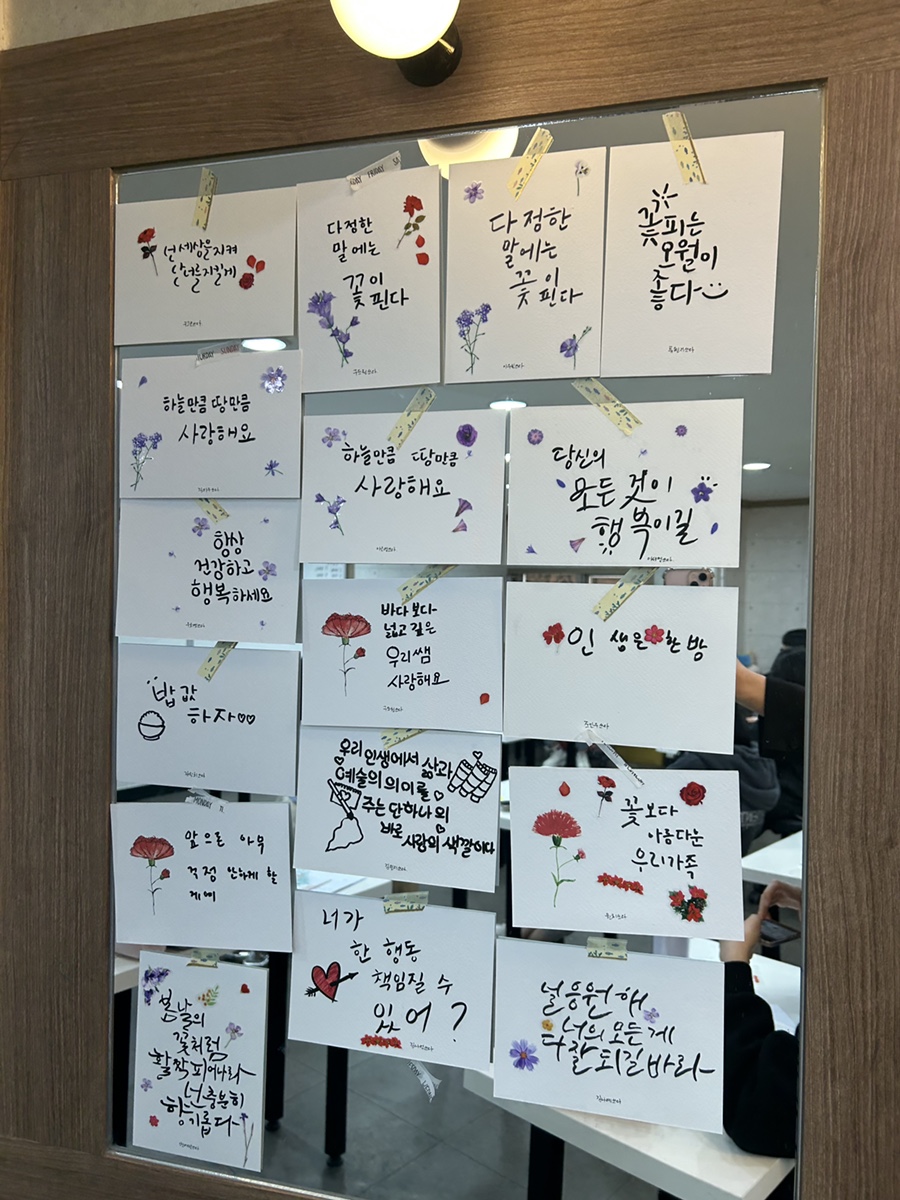 넌 세상을지켜
난 너를지킬게
DAY FRIDAY SA
다정한
말에는
꽃이
핀다
다정한
말에는
꽃이
핀다
꽃피는
오월이
좋다
SUNDAY
하늘만큼 땅만큼
사랑해요
하늘만큼 땅만큼
사랑해요
당신의
모든 것이
행복이길
항상
건강하고
행복하세요
바다보다
넓고깊은
우리쌤
사랑해요
인생은 한방
밥값
하자♡♡
우리 인생에서 삶과
예술의 의미를
주는 단하나의
바로
사랑의 색깔이다
꽃보다
아름다운
우리가족
MONDAY
앞으로 아무
걱정 안하게 할
게예
너가
한 행동
책임질 수
있어?
널 응원해
너의 모든게
다 잘되길바라
봄날의
꽃처럼
활짝피어나라
넌충분히
향기롭다